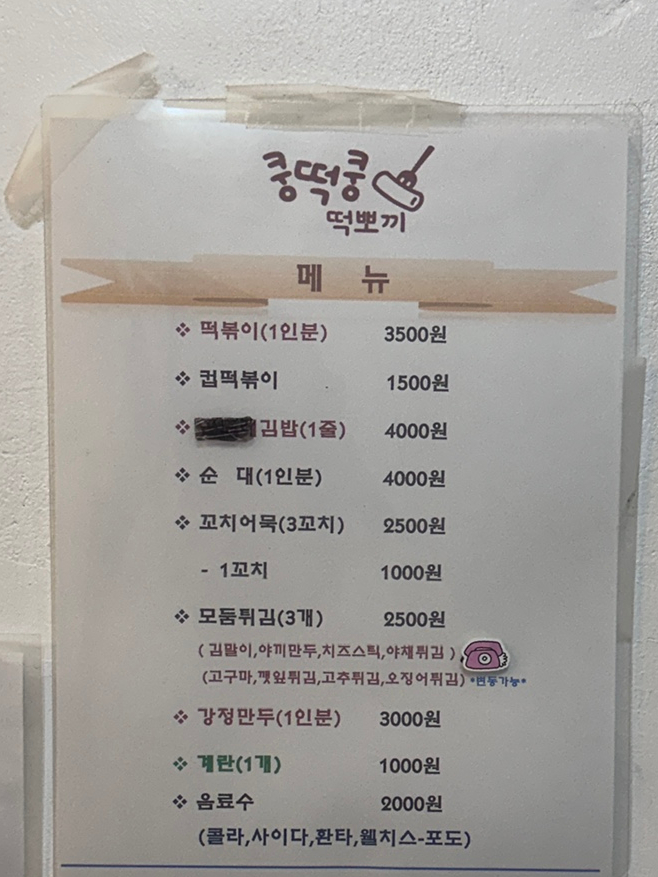 쿵떡쿵
떡뽀끼
메 뉴
❖ 떡볶이(1인분) 3500원
❖ 컵떡볶이 1500원
❖ 김밥(1줄) 4000원
❖ 순 대(1인분) 4000원
❖ 꼬치어묵(3꼬치) 2500원
- 1꼬치 1000원
❖ 모둠튀김(3개) 2500원
( 김말이,야끼만두,치즈스틱,야채튀김 )
(고구마,깻잎튀김,고추튀김,오징어튀김) *변동가능*
❖ 강정만두(1인분) 3000원
❖ 계란(1개) 1000원
❖ 음료수 2000원
(콜라,사이다,환타,웰치스-포도)